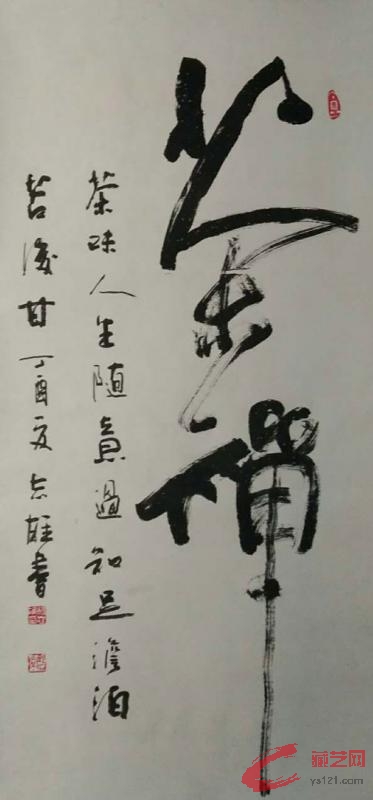 茶禅
茶味人生随意过知足澹泊
苦后甘丁酉夏志雄书
藏艺网
ys121.com